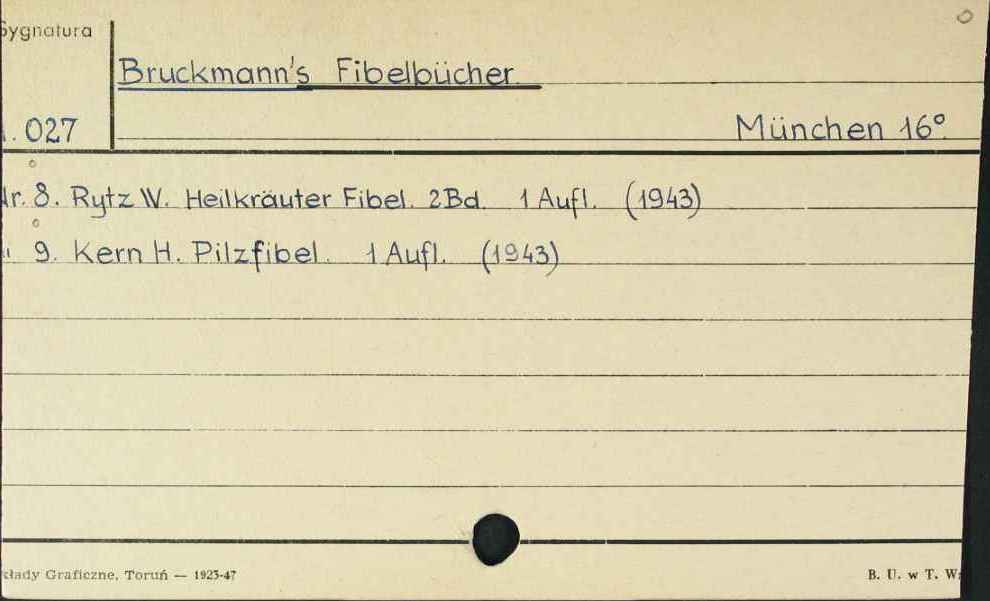 Sygnatura
Bruckmann's Fibelbücher
027
München 16°
Nr. 8. Rytz W. Heilkräuter Fibel. 2Bd. 1 Aufl. (1943)
" 9. Kern H. Pilzfibel. 1 Aufl. (1943)
kłady Graficzne, Toruń — 1923-47
B. U. w T. W